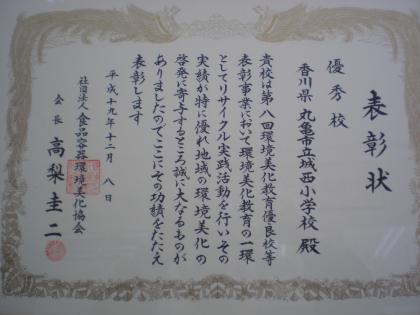 表彰状
優秀校
香川県 丸亀市立城西小学校 殿
貴校は第八回環境美化教育優良校等
表彰事業において環境美化教育の一環
としてリサイクル実践活動を行いその
実績が特に優れ地域の環境美化の
啓発に寄与するところ誠に大なるものが
ありましたのでここにその功績をたたえ
表彰します
平成十九年十二月 八日
社団法人 食品容器環境美化協会
会長 高梨圭二